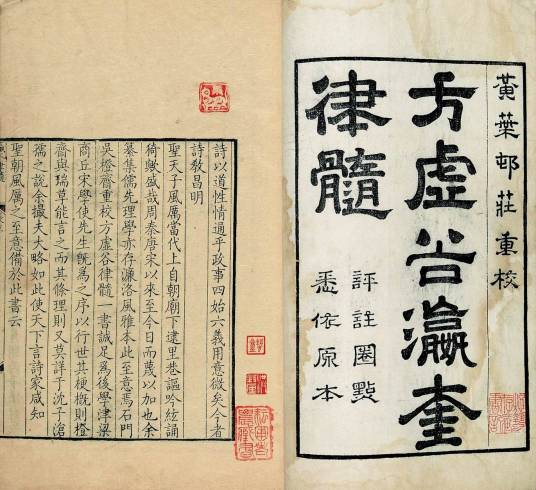 黃葉邨莊重校
方虛谷瀛奎
律髓
評註圈點
悉依原本
詩以道性情通乎政事四始六義用意微矣今者
詩教昌明
聖天子風厲當代上自朝廟下逮里巷謳吟絃誦
猗歟盛哉周秦唐宋以來至今日而蔑以加也余
纂集儒先理學亦存濂洛風雅本此至意焉石門
吳橙齋重校方虛谷律髓一書誠足爲後學津梁
商丘宋學使先生旣爲之序以行世其梗概則橙
齋與瑞草能言之而其條理則又莫詳于沈子滄
孺之説余撮夫大略如此使天下言詩家咸知
聖朝風厲之至意備於此書云